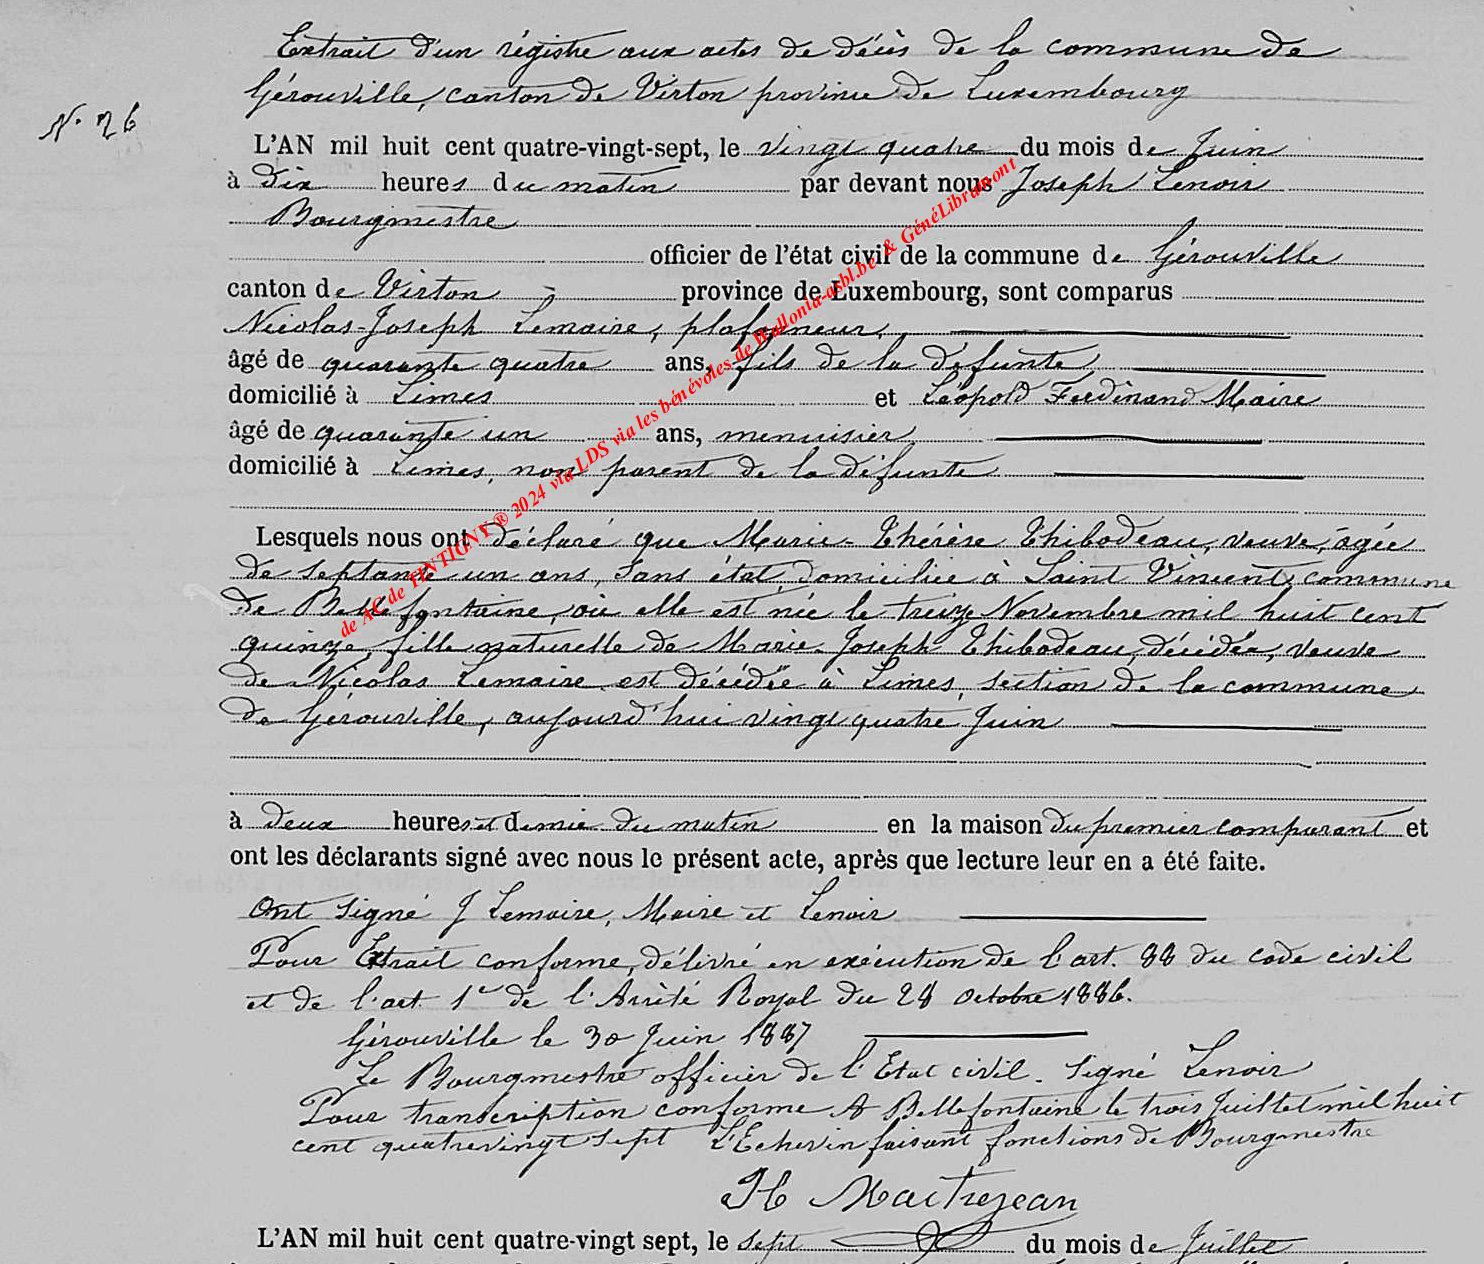 Extrait d'un régistre aux actes de décès de la commune de
Gérouville, canton de Virton province de Luxembourg
N. 26
L'AN mil huit cent quatre-vingt-sept, le vingt quatre du mois de Juin
à dix heures du matin par devant nous Joseph Lenoir
Bourgmestre
officier de l'état civil de la commune de Gérouville
canton de Virton province de Luxembourg, sont comparus
Nicolas-Joseph Lemaire, plafonneur,
âgé de quarante quatre ans, fils de la défunte,
domicilié à Limes et Léopold Ferdinand Maire
âgé de quarante un ans, menuisier,
domicilié à Limes, non parent de la défunte
Lesquels nous ont déclaré que Marie-Thérèse Thibodeau, veuve, âgée
de septante un ans, sans état, domiciliée à Saint Vincent, commune
de Bellefontaine, où elle est née le treize Novembre mil huit cent
quinze, fille naturelle de Marie-Joseph Thibodeau, décédée, veuve
de Nicolas Lemaire est décédée à Limes, section de la commune
de Gérouville, aujourd'hui vingt quatre Juin
à deux heures et demie du matin en la maison du premier comparant et
ont les déclarants signé avec nous le présent acte, après que lecture leur en a été faite.
Ont signé J Lemaire, Maire et Lenoir
Pour Extrait conforme, délivré en exécution de l'art. 88 du code civil
et de l'art 1er de l'Arrêté Royal du 28 octobre 1886.
Gérouville le 30 Juin 1887
Le Bourgmestre officier de l'Etat civil. Signé Lenoir
Pour transcription conforme A Bellefontaine le trois Juillet mil huit
cent quatrevingt sept L'Echevin faisant fonctions de Bourgmestre
H Maitrejean
L'AN mil huit cent quatre-vingt sept, le sept du mois de Juillet
de AC de TINTIGNY ® 2024 via LDS via les bénévoles de Wallonia-asbl.be & GénéLibramont